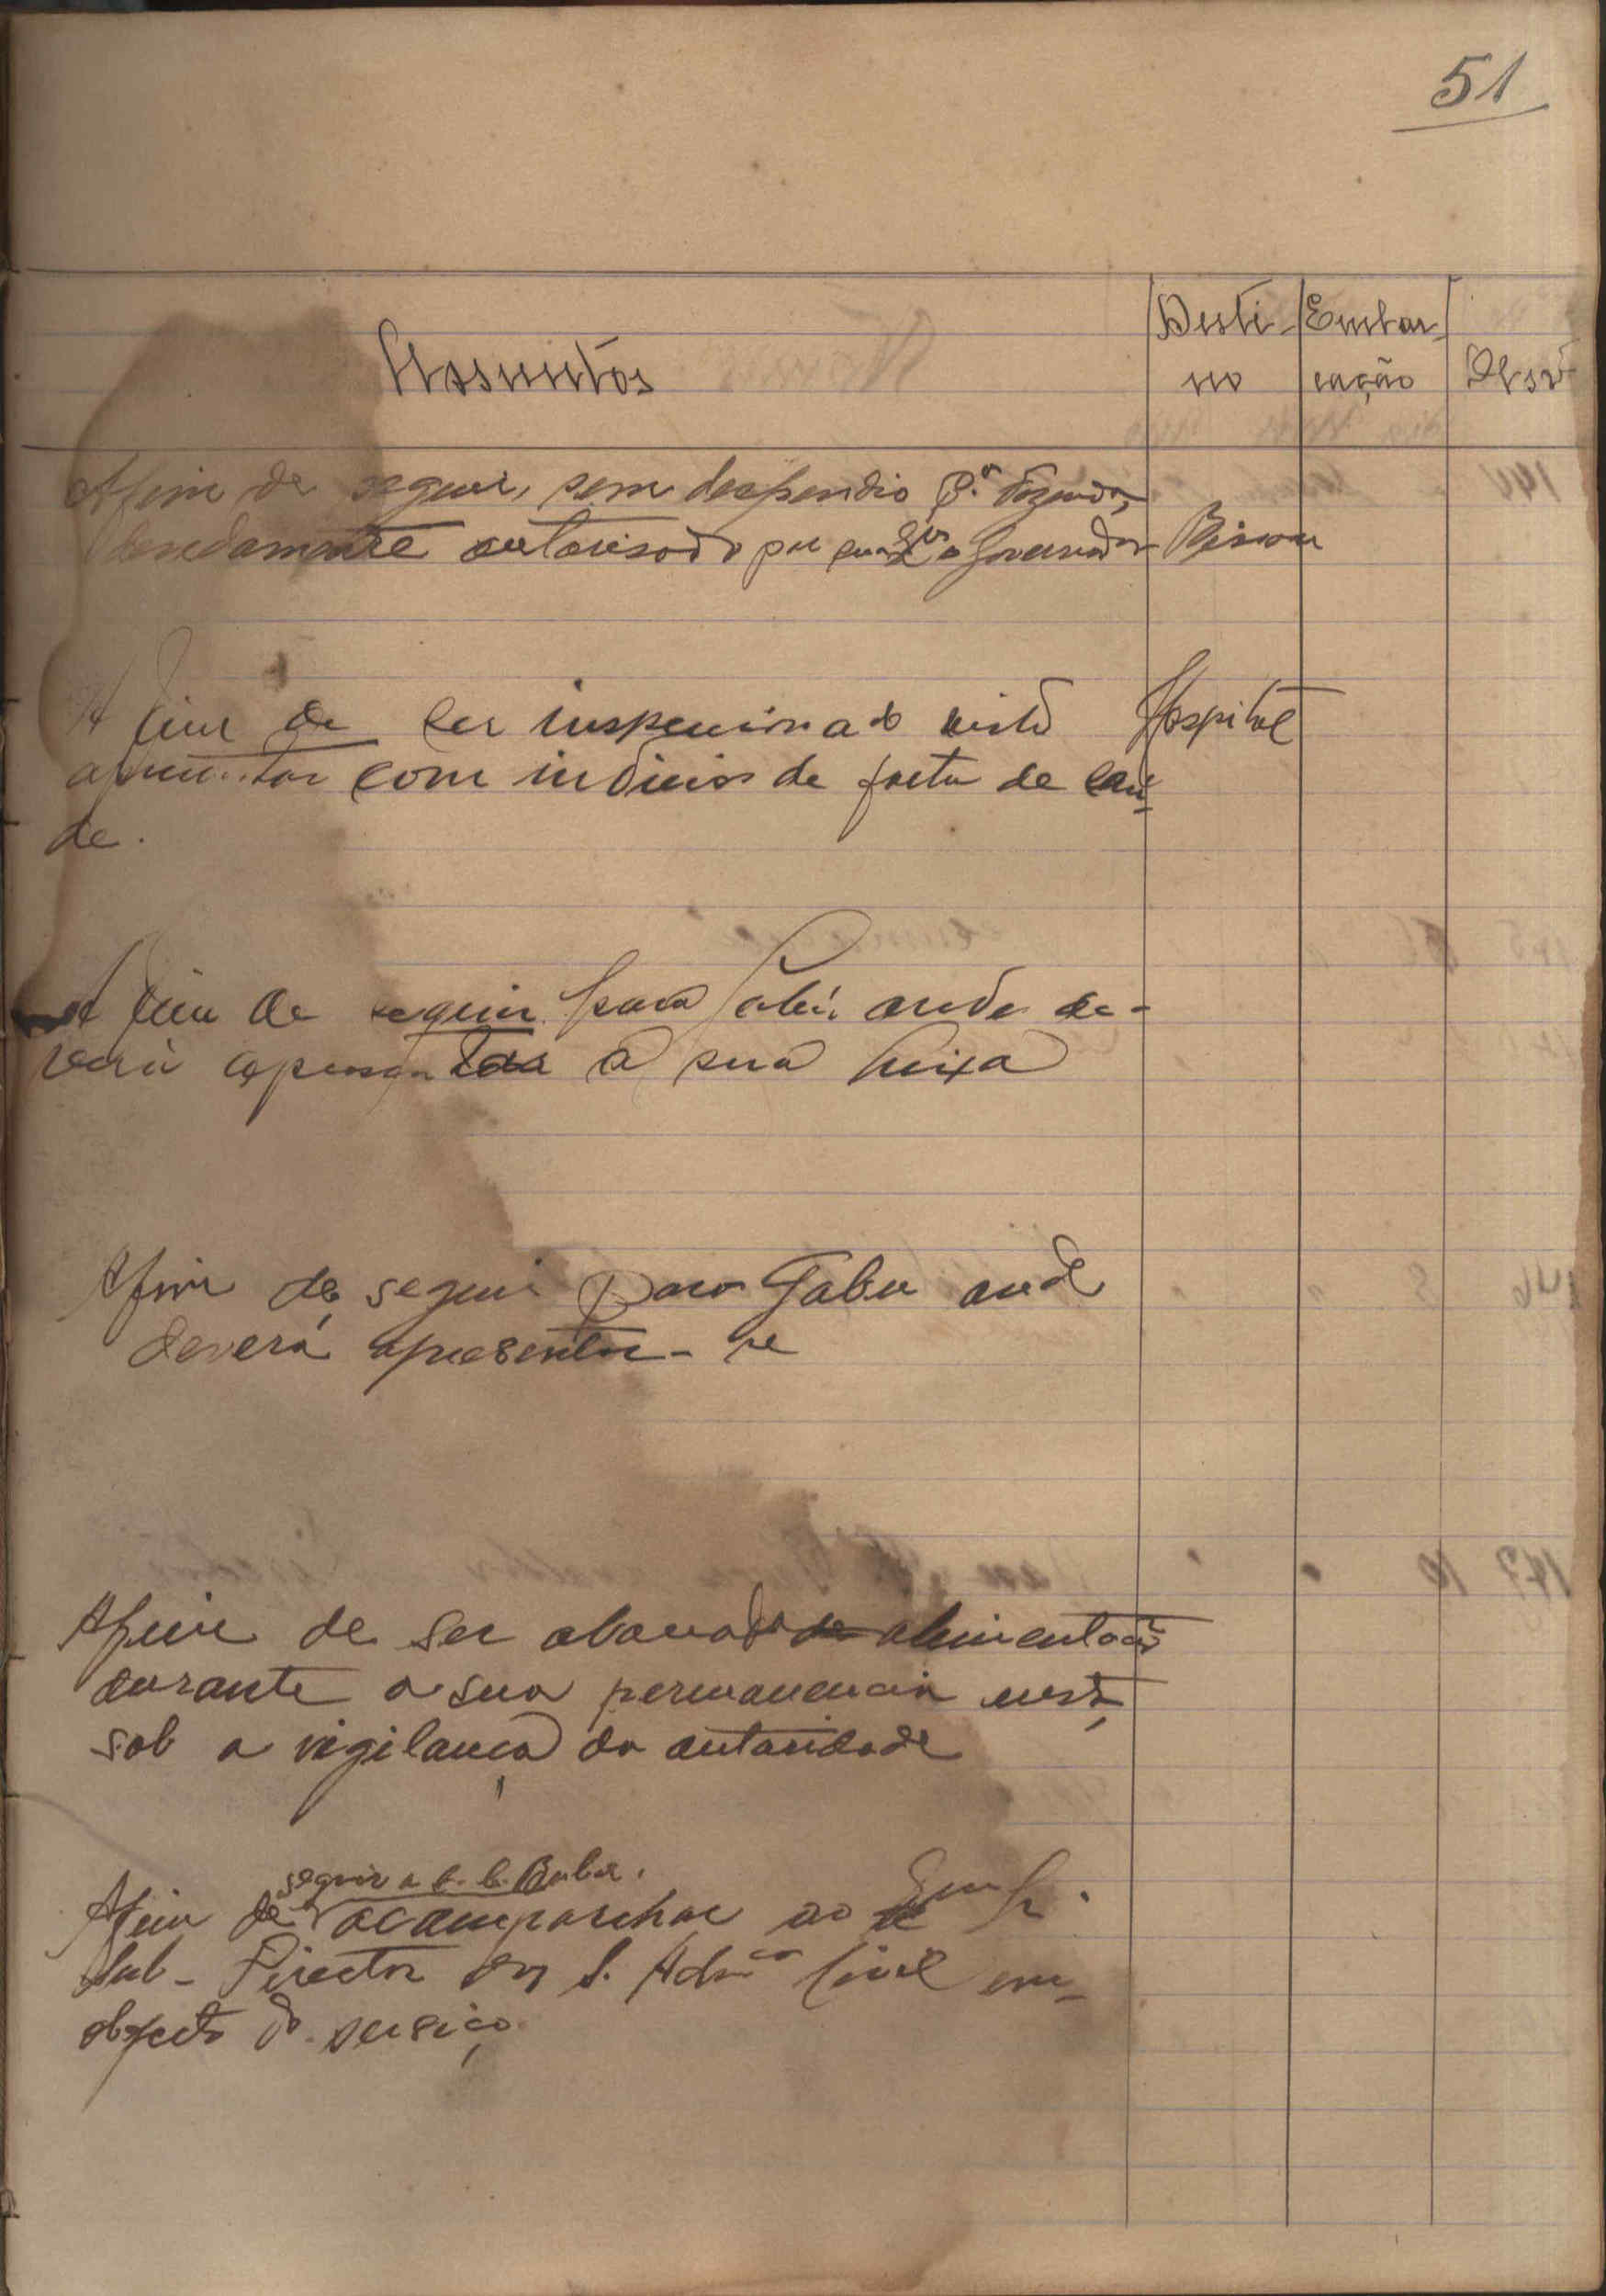 51
Assuntos
Desti-
no
Embar-
cação
Obsv
Afim de seguir, sem despendio p.ª Fazenda,
devidamente autorisado por sua Exª o Governador
Bissau
A fim de ser inspecionado visto
Hospital
apresentar com indicios de falta de sau-
de.
A fim de seguir para Gabú, onde de-
verá apresentar a sua
Afim de seguir para Gabu onde
deverá apresentar-se
Afim de ser abonado de alimentação
durante a sua permanencia nesta,
sob a vigilança da autoridade
seguir a
Afim de acompanhar ao Exmº Sr.
Sub-Director dos S. Admªº Civil em
objecto de serviço.